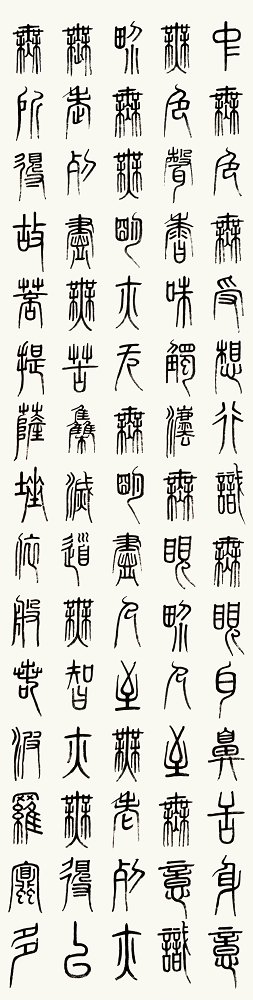 中無色無受想行識無眼耳鼻舌身意
無色聲香味觸法無眼界乃至無意識
界無無明亦无無明盡乃至無老死亦
無老死盡無苦集滅道無智亦無得以
無所得故菩提薩埵依般若波羅蜜多